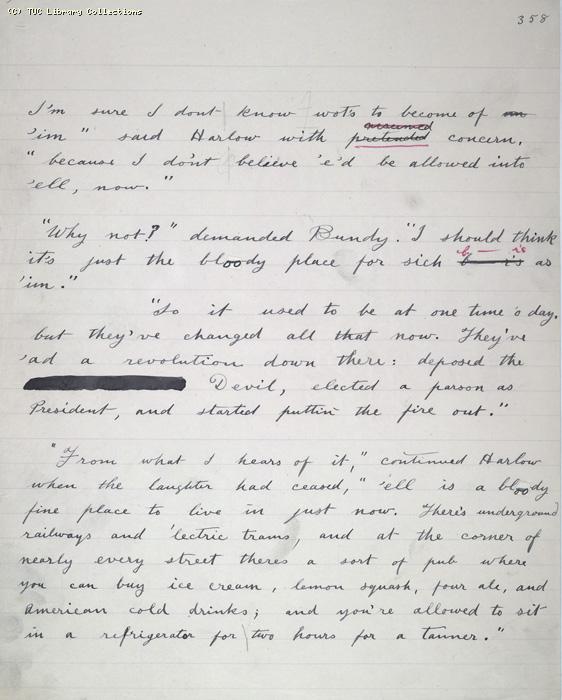 (C) TUC Library Collections
358
I'm sure I dont know wots to become of
'im" said Harlow with pretended concern.
assumed
"because I don't believe 'e'd be allowed into
'ell, now."
"Why not?" demanded Bundy. "I should think
it's just the bloody place for sich b——r's as
'im."
"So it used to be at one time o day.
but they've changed all that now. They've
'ad a revolution down there: deposed the
Devil, elected a parson as
President, and started puttin the fire out."
"From what I hears of it," continued Harlow
when the laughter had ceased, "'ell is a bloody
fine place to live in just now. There's underground
railways and 'lectric trams, and at the corner of
nearly every street theres a sort of pub where
you can buy ice cream, lemon squash, four ale, and
American cold drinks; and you're allowed to sit
in a refrigerator for two hours for a tanner."